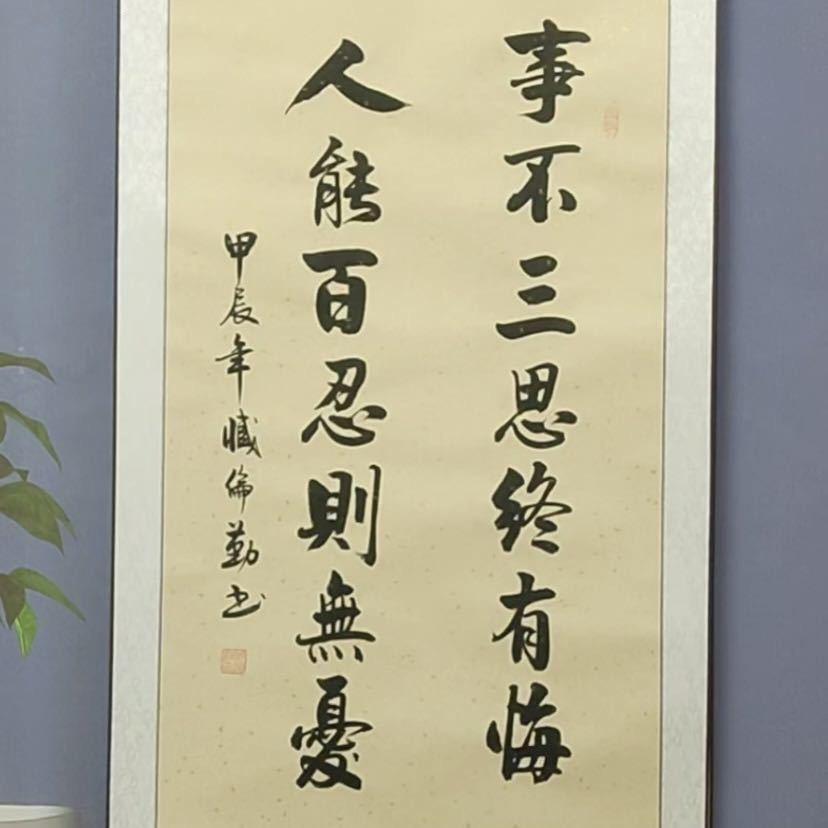 事不三思终有悔
人能百忍則無憂
甲辰年臧倫勤书